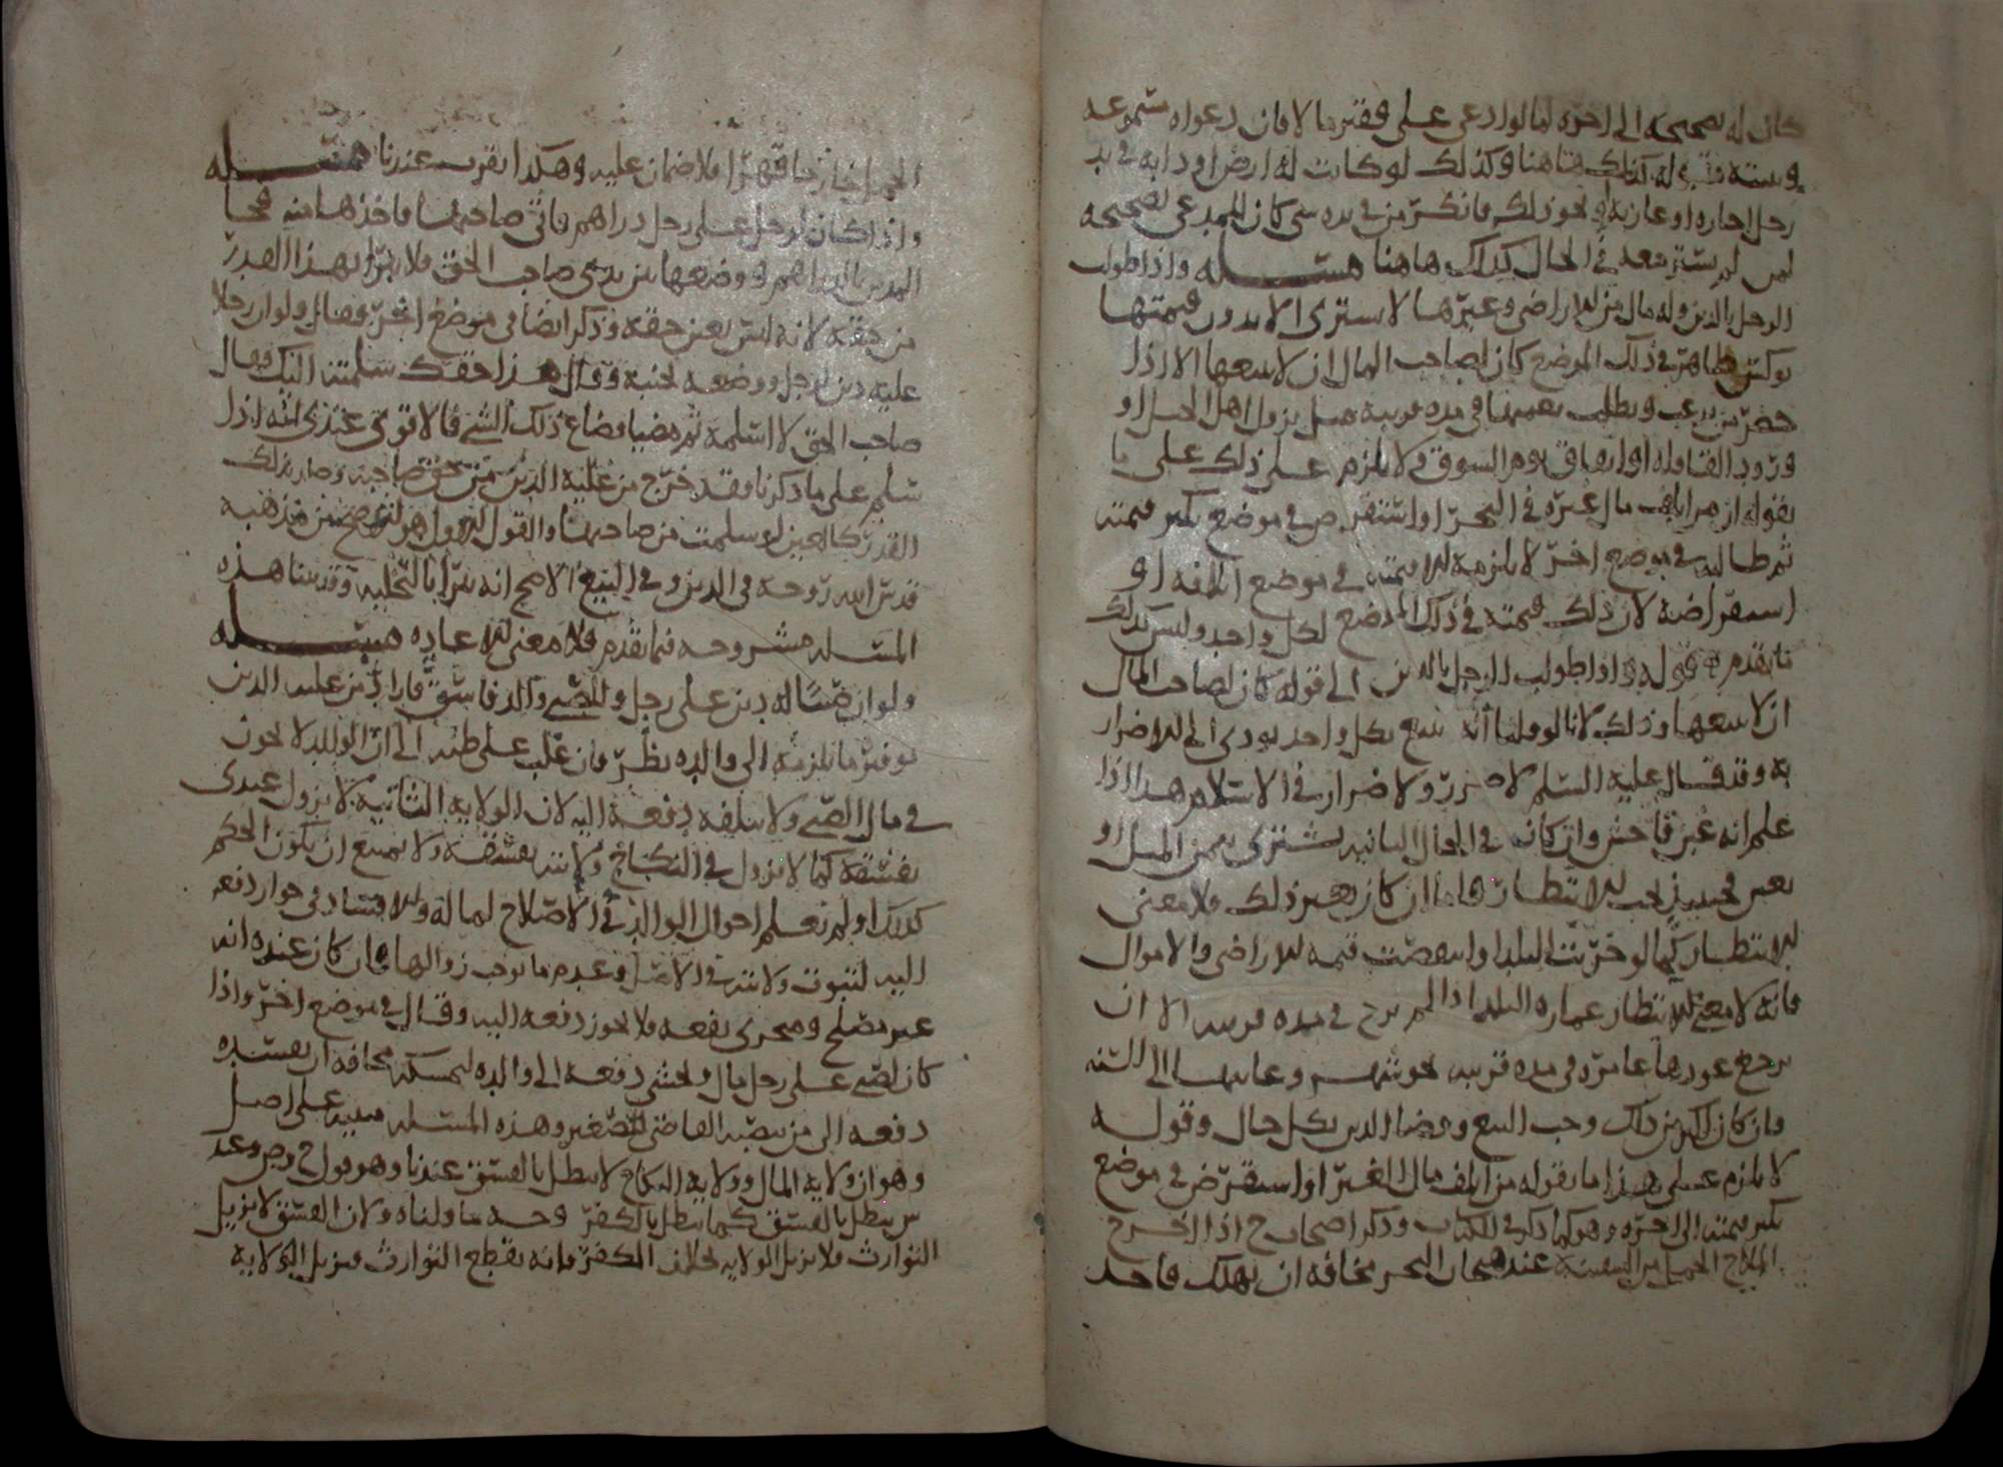 كان له تصحيحه الى اخره كما لو ادعى على فقير مالا فان دعواه مسموعه
وبينته كذلك هاهنا وكذلك لو كانت له ارض او دابه في يد
رجل اجاره او عاريه او نحو ذلك فانكر من في يده شي كان للمدعي تصحيحه
في الحال كذلك هاهنا مسئله واذا طولب
الرجل بالدين وله مال من الاراضي وغيرها لا يشترى الا بدون قيمتها
في ذلك الموضع كان لصاحب المال ان لا يبيعها الا اذا
حضر من يرغب ويطلب بقيمتها في مده قريبه مثل نزول اهل الجبل او
ورود القافله او اتفاق يوم السوق ولا يلزم على ذلك على ما
يقوله ان من اتلف مال غيره في البحر او استقرض في موضع يكثر قيمته
ثم طالبه في موضع اخر لا يلزمه الا قيمته في موضع اتلافه او
استقراضه لان ذلك قيمته في ذلك الموضع لكل واحد وليس كذلك
ما تقدم قوله واذا طولب الرجل بالدين الى قوله كان لصاحب المال
ان لا يبيعها وذلك لانا لو قلنا انه يبيع بكل واحد يودي الى الاضرار
به وقد قال عليه السلم لا ضرر ولا ضرار في الاسلام هذا اذا
علم انه غبن فاحش وان كان في الحال الثانيه يشترى بثمن المثل او
بغبن فحينئذ يجب الانتظار فاما ان كان بغير ذلك فلا معنى
للانتظار كما لو خربت البلد او انتقصت قيمه الاراضي والاموال
فانه لا معنى لانتظار عماره البلد اذا لم يرج في مده قريبه الا ان
يرجع عودها عامره في مده قريبه نحو شهر وغايتها الى السنه
وان كان اكثر من ذلك وجب البيع وقضا الدين بكل حال وقوله
لا يلزم على هذا ما يقوله من اتلف مال الغير او استقرض في موضع
يكثر قيمته الى اخره وهو كما ذكر في الكتاب وذكر اصحاب ح اذا اخرج
الملاح الحمل من السفينه عند هيجان البحر مخافه ان يهلك فاخذ
الحمل قهرا فلا ضمان عليه وهكذا يقرب عندنا مسئله
واذا كان لرجل على رجل دراهم فاتى صاحبها فاخذها منه فجا
المدين بالدراهم ووضعها بين يدي صاحب الحق فلا يبرا بهذا القدر
من حقه لانه ليس بعين حقه وذكر ايضا في موضع اخر فقال ولو ان رجلا
عليه دين لرجل ووضعه بجنبه وقال هذا حقك سلمته اليك فقال
صاحب الحق لا استلمه ثم مضيا وضاع ذلك الشي فالاقوى عندي انه اذا
سلم على ما ذكرنا فقد خرج من عليه الدين من حق صاحبه وصار بذلك
القدر كالعين لو سلمت من صاحبها والقول الاول هو الاصح من مذهبه
قدس الله روحه في الدين وفي البيع الاصح انه يبرا بالتخليه وقد بينا هذه
المسئله مشروحه فيما تقدم فلا معنى للاعاده مسئله
ولو ان صبيا له دين على رجل وللصبي والد فاسق فاراد من عليه الدين
توفير ما يلزمه الى والده نظر فان غلب على ظنه الى ان الوالد لا يخون
في مال الصبي ولا يتلفه دفعه اليه لان الولايه الثابته لا تزول عندي
بفسقه كما لا تزول في النكاح ولايته بفسقه ولا يمتنع ان يكون الحكم
كذلك او لم تعلم احوال الوالد في الاصلاح لماله والافساد في جواز دفعه
اليه لثبوت ولايته في الاصل وعدم ما يوجب زوالها فان كان عنده انه
غير مصلح ومجرى نفعه فلا يجوز دفعه اليه وقال في موضع اخر واذا
كان لصبي على رجل مال وخشي دفعه الى والده ليمسكه مخافه ان يفسده
دفعه الى من ينصبه القاضي للصغير وهذه المسئله مبنيه على اصل
وهو ان ولايه المال وولايه النكاح لا تبطل بالفسق عندنا وهو قول ح وص وعند
ش يبطل بالفسق كما يبطل بالكفر وجه ما قلناه ولان الفسق لا يزيل
التوارث فلا يزيل الولايه بخلاف الكفر فانه يقطع التوارث فيزيل الولايه